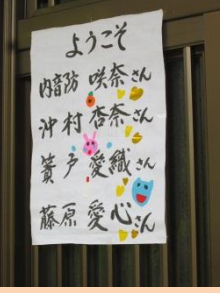 ようこそ
内音防 咲奈さん
沖村 杏奈さん
簀戸 愛織さん
藤原 愛心さん